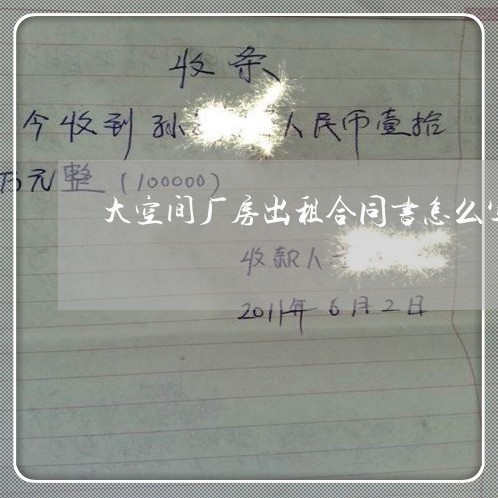 收条
今收到孙 人民币壹拾
万元整（100000）
大空间厂房出租合同书怎么
收款人
2011年6月2日